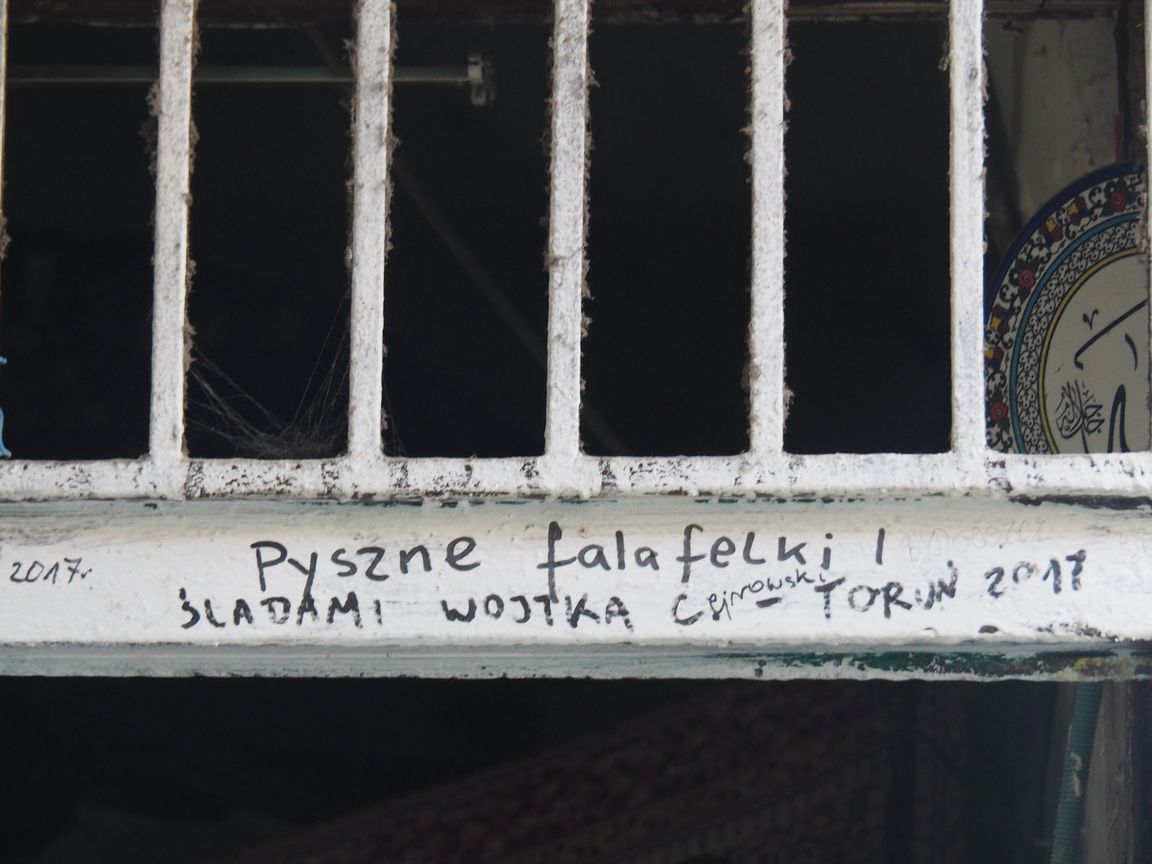 Pyszne falafelki!
2017r
ŚLADAMI WOJTKA Cejrowski - TORUŃ 2017
BYDGOSZCZ